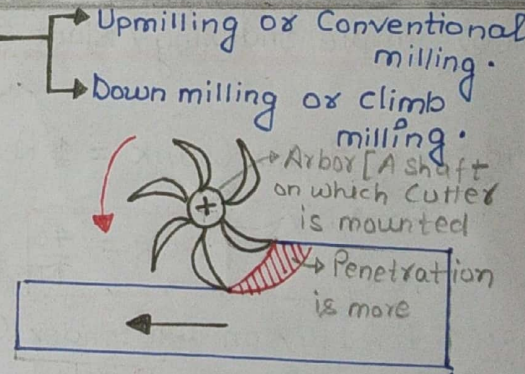 Upmilling or Conventional
milling.
Down milling or climb
milling.
Arbor [A shaft
on which cutter
is mounted
Penetration
is more